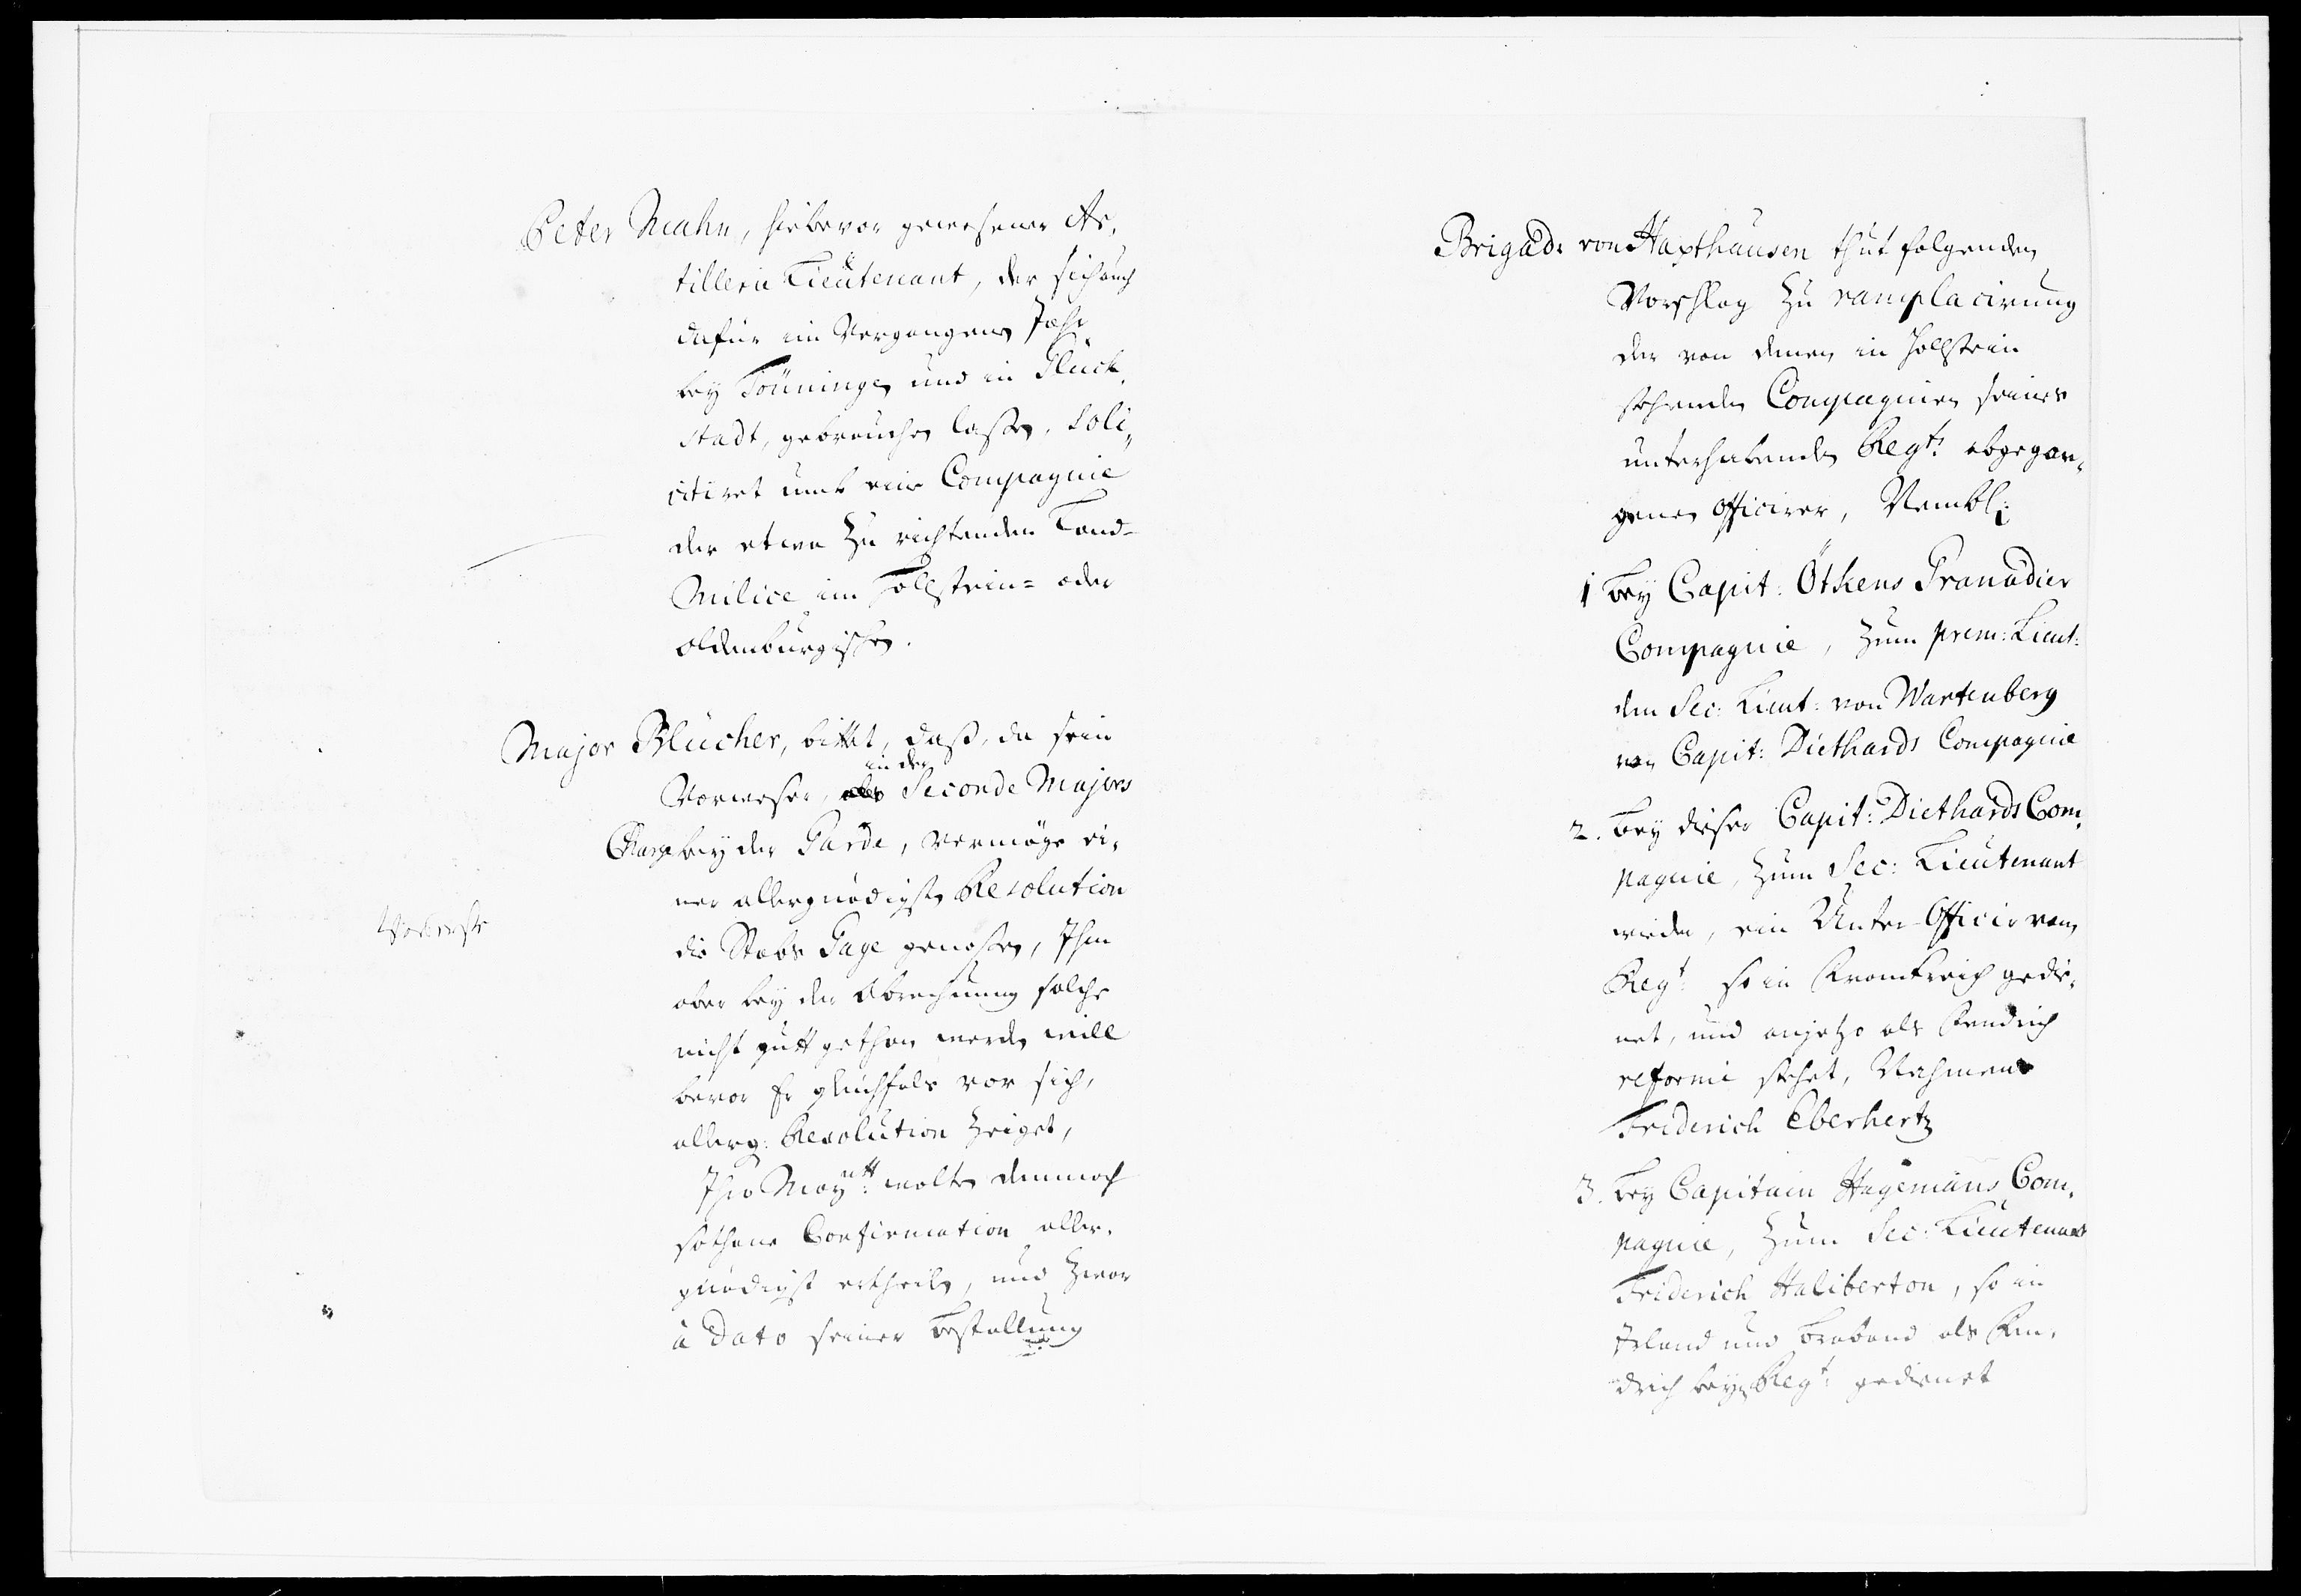 Peter Mahn, hiebevor gewesener Ar,
tillerie Lieutenant, der sich auch
dafür im Vergangenen Jahr
bey Tönningen und in Glück,
stadt, gebrauchen lassen, Soli,,
citiret umb eine Compagnie
der etwa zu richtenden Land-
Milice im Hollstein= oder
Oldenburgischen.
Major Blücher, bittet, dass, da sein
Vorweser, in der Seconde Majors
Charge bey der Garde, vermöge ei,
ner allergnädigsten Resolution
die Stabs Gage genossen, Ihm
aber bey der Abrechnung solche
nicht gutt gethan werden will
bevor Er gleichfals vor sich,
allerg: Resolution zeiget,
Ihro Maytt: wolten demnach
sothane Confirmation aller,
gnädigst ertheilen, und zwar
à Dato seiner Bestallung
Brigad: von Haxthausen thut folgenden
Vorschlag zu ramplacirung
der von denen in Hollstein
stehenden Compagnien seines
unterhabenden Regts: abgegan,,
genen Officirer, Nembl:
1 Bey Capit: Öthens Granadier
Compagnie, zum prem: Lieut:
den Sec: Lieut: von Wartenberg
von Capit: Diethards Compagnie
2. Bey dieser Capit: Diethards Com,
pagnie, zum Sec: Lieutenant
wieder, ein Unter-Officir vom
Regt: so in Franckreich gedie,
net, und anjetzo als Fendrich
reformé stehet, Nahmens
Friderich Eberhertz
3. Bey Capitain Hagemans Com,
pagnie, zum Sec: Lieutenant
Friderich Haliberton, so in
Irland und Braband als Fen,
drich beym Regt: gedienet